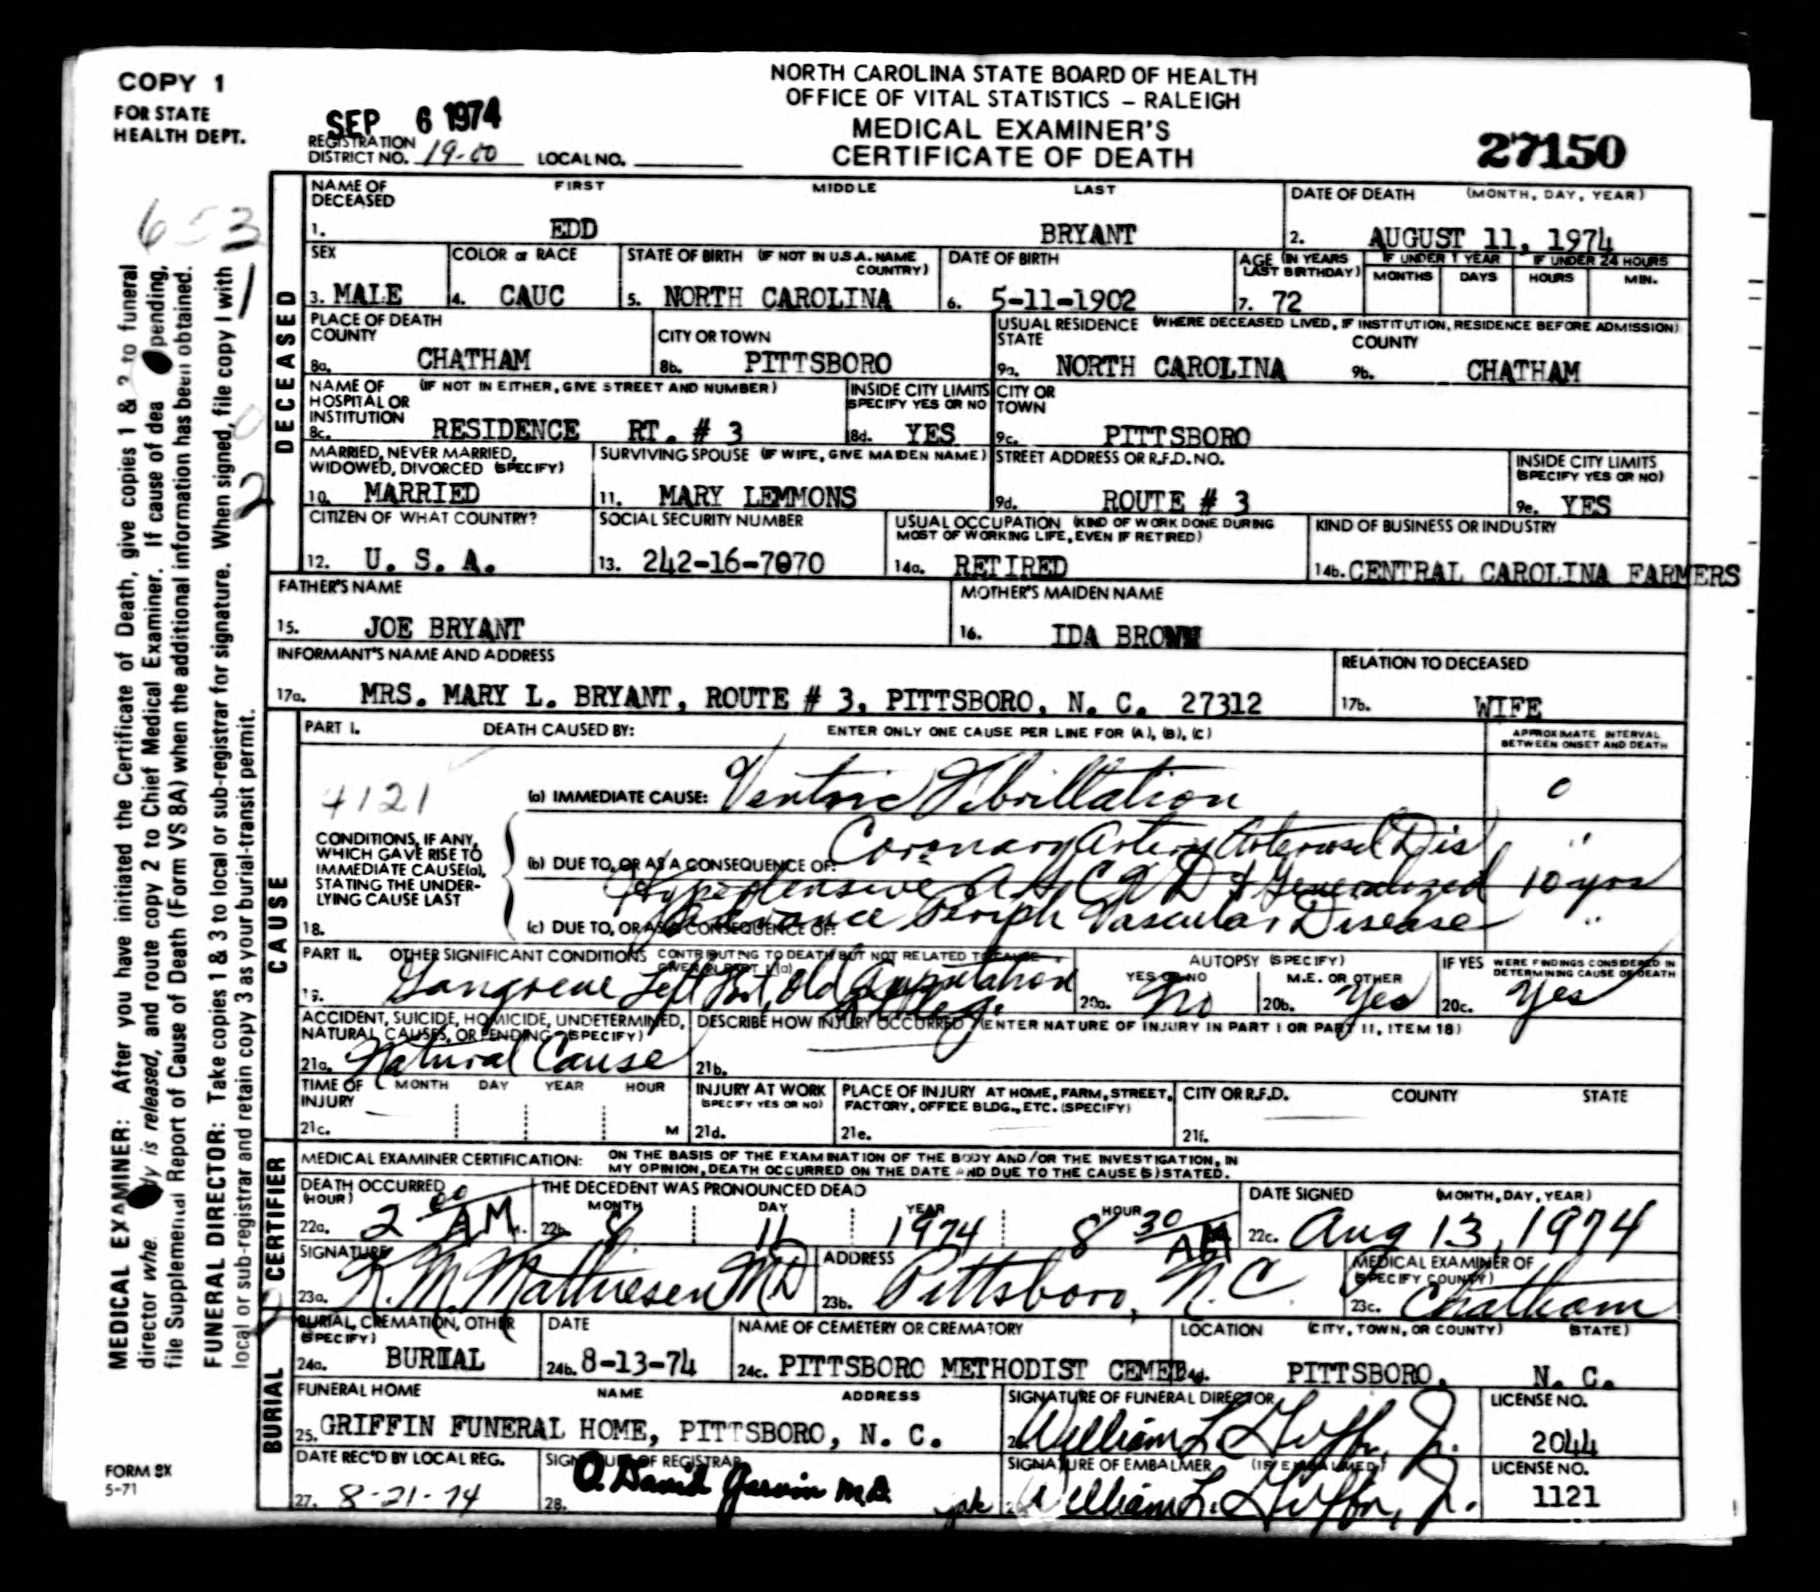 COPY 1
FOR STATE
HEALTH DEPT.
NORTH CAROLINA STATE BOARD OF HEALTH
OFFICE OF VITAL STATISTICS – RALEIGH
MEDICAL EXAMINER'S
CERTIFICATE OF DEATH
SEP 6 1974
REGISTRATION
DISTRICT NO. 19-00 LOCAL NO.
27150
653
1
0
2
MEDICAL EXAMINER: After you have initiated the Certificate of Death, give copies 1 & 2 to funeral
director whe dy is released, and route copy 2 to Chief Medical Examiner. If cause of dea pending,
file Supplemental Report of Cause of Death (Form VS 8A) when the additional information has been obtained.
FUNERAL DIRECTOR: Take copies 1 & 3 to local or sub-registrar for signature. When signed, file copy 1 with
local or sub-registrar and retain copy 3 as your burial-transit permit.
DECEASED
NAME OF DECEASED FIRST MIDDLE LAST
1. EDD BRYANT
DATE OF DEATH (MONTH, DAY, YEAR)
2. AUGUST 11, 1974
SEX
3. MALE
COLOR or RACE
4. CAUC
STATE OF BIRTH (IF NOT IN U.S.A. NAME COUNTRY)
5. NORTH CAROLINA
DATE OF BIRTH
6. 5-11-1902
AGE (IN YEARS LAST BIRTHDAY)
7. 72
IF UNDER 1 YEAR
MONTHS DAYS
IF UNDER 24 HOURS
HOURS MIN.
PLACE OF DEATH
COUNTY
8a. CHATHAM
CITY OR TOWN
8b. PITTSBORO
USUAL RESIDENCE (WHERE DECEASED LIVED, IF INSTITUTION, RESIDENCE BEFORE ADMISSION)
STATE COUNTY
9a. NORTH CAROLINA 9b. CHATHAM
NAME OF HOSPITAL OR INSTITUTION (IF NOT IN EITHER, GIVE STREET AND NUMBER)
8c. RESIDENCE RT. # 3
INSIDE CITY LIMITS
SPECIFY YES OR NO
8d. YES
CITY OR TOWN
9c. PITTSBORO
MARRIED, NEVER MARRIED,
WIDOWED, DIVORCED (SPECIFY)
10. MARRIED
SURVIVING SPOUSE (IF WIFE, GIVE MAIDEN NAME)
11. MARY LEMMONS
STREET ADDRESS OR R.F.D. NO.
9d. ROUTE # 3
INSIDE CITY LIMITS
(SPECIFY YES OR NO)
9e. YES
CITIZEN OF WHAT COUNTRY?
12. U. S. A.
SOCIAL SECURITY NUMBER
13. 242-16-7070
USUAL OCCUPATION (KIND OF WORK DONE DURING
MOST OF WORKING LIFE, EVEN IF RETIRED)
14a. RETIRED
KIND OF BUSINESS OR INDUSTRY
14b. CENTRAL CAROLINA FARMERS
FATHER'S NAME
15. JOE BRYANT
MOTHER'S MAIDEN NAME
16. IDA BROWN
INFORMANT'S NAME AND ADDRESS
17a. MRS. MARY L. BRYANT, ROUTE # 3, PITTSBORO, N. C. 27312
RELATION TO DECEASED
17b. WIFE
CAUSE
PART I. DEATH CAUSED BY: ENTER ONLY ONE CAUSE PER LINE FOR (A), (B), (C)
APPROXIMATE INTERVAL
BETWEEN ONSET AND DEATH
4121
(a) IMMEDIATE CAUSE: Ventric Fibrillation 0
CONDITIONS, IF ANY,
WHICH GAVE RISE TO
IMMEDIATE CAUSE(a),
STATING THE UNDER-
LYING CAUSE LAST
18.
(b) DUE TO, OR AS A CONSEQUENCE OF: Coronary Artery Arterioscl Dis "
Hypertensive A.S.C.V.D & Generalized 10 yrs
(c) DUE TO, OR AS A CONSEQUENCE OF: Periph Vascular Disease "
PART II. OTHER SIGNIFICANT CONDITIONS CONTRIBUTING TO DEATH BUT NOT RELATED TO CAUSE GIVEN IN PART I (a)
19. Gangrene Left Foot, Old Amputation Leg.
AUTOPSY (SPECIFY)
YES or NO
20a. No
M.E. OR OTHER
20b. Yes
IF YES WERE FINDINGS CONSIDERED IN
DETERMINING CAUSE OF DEATH
20c. Yes
ACCIDENT, SUICIDE, HOMICIDE, UNDETERMINED,
NATURAL CAUSES, OR PENDING (SPECIFY)
21a. Natural Cause
DESCRIBE HOW INJURY OCCURRED (ENTER NATURE OF INJURY IN PART I OR PART II, ITEM 18)
21b.
TIME OF INJURY MONTH DAY YEAR HOUR
21c. M
INJURY AT WORK
(SPECIFY YES OR NO)
21d.
PLACE OF INJURY AT HOME, FARM, STREET,
FACTORY, OFFICE BLDG., ETC. (SPECIFY)
21e.
CITY OR R.F.D. COUNTY STATE
21f.
CERTIFIER
MEDICAL EXAMINER CERTIFICATION: ON THE BASIS OF THE EXAMINATION OF THE BODY AND/OR THE INVESTIGATION, IN
MY OPINION, DEATH OCCURRED ON THE DATE AND DUE TO THE CAUSE(S) STATED.
DEATH OCCURRED
(HOUR)
22a. 2 00 A.M.
THE DECEDENT WAS PRONOUNCED DEAD
MONTH DAY YEAR HOUR
22b. 8 11 1974 8 30 AM
DATE SIGNED (MONTH, DAY, YEAR)
22c. Aug 13, 1974
SIGNATURE
23a. K. M. Mathiesen MD
ADDRESS
23b. Pittsboro, N.C.
MEDICAL EXAMINER OF
(SPECIFY COUNTY)
23c. Chatham
BURIAL
BURIAL, CREMATION, OTHER
(SPECIFY)
24a. BURIAL
DATE
24b. 8-13-74
NAME OF CEMETERY OR CREMATORY
24c. PITTSBORO METHODIST CEMET
LOCATION (CITY, TOWN, OR COUNTY) (STATE)
24d. PITTSBORO, N. C.
FUNERAL HOME NAME ADDRESS
25. GRIFFIN FUNERAL HOME, PITTSBORO, N. C.
SIGNATURE OF FUNERAL DIRECTOR
26. William L. Griffin, Jr.
LICENSE NO.
2044
DATE REC'D BY LOCAL REG.
27. 8-21-74
SIGNATURE OF REGISTRAR
28. O. David Garvin M.D.
SIGNATURE OF EMBALMER (IF EMBALMED)
William L. Griffin, Jr.
LICENSE NO.
1121
FORM 8X
5-71